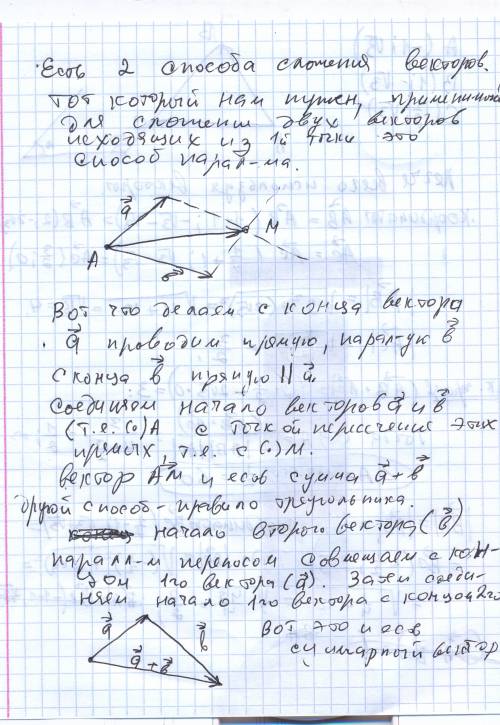 Есть 2 способа сложения векторов.
Тот который нам нужен, применимый
для сложения двух векторов
исходящих из 1й точки это
способ парал-ма.
a⃗
M
A
b⃗
Вот что делаем с конца вектора
a⃗ проводим прямую, парал-ую b⃗
с конца b⃗ прямую || a⃗.
Соединяем начало векторов a⃗ и b⃗
(т.е. (·)A с точкой пересечения этих
прямых, т.е. с (·)M.
вектор AM⃗ и есть сумма a⃗+b⃗
Другой способ - правило треугольника.
начало второго вектора (b⃗)
паралл-м переносом совмещаем с кон-
цом 1го вектора (a⃗). Затем соеди-
няем начало 1го вектора с концом 2го
a⃗
b⃗
a⃗+b⃗
Вот это и есть
суммарный вектор